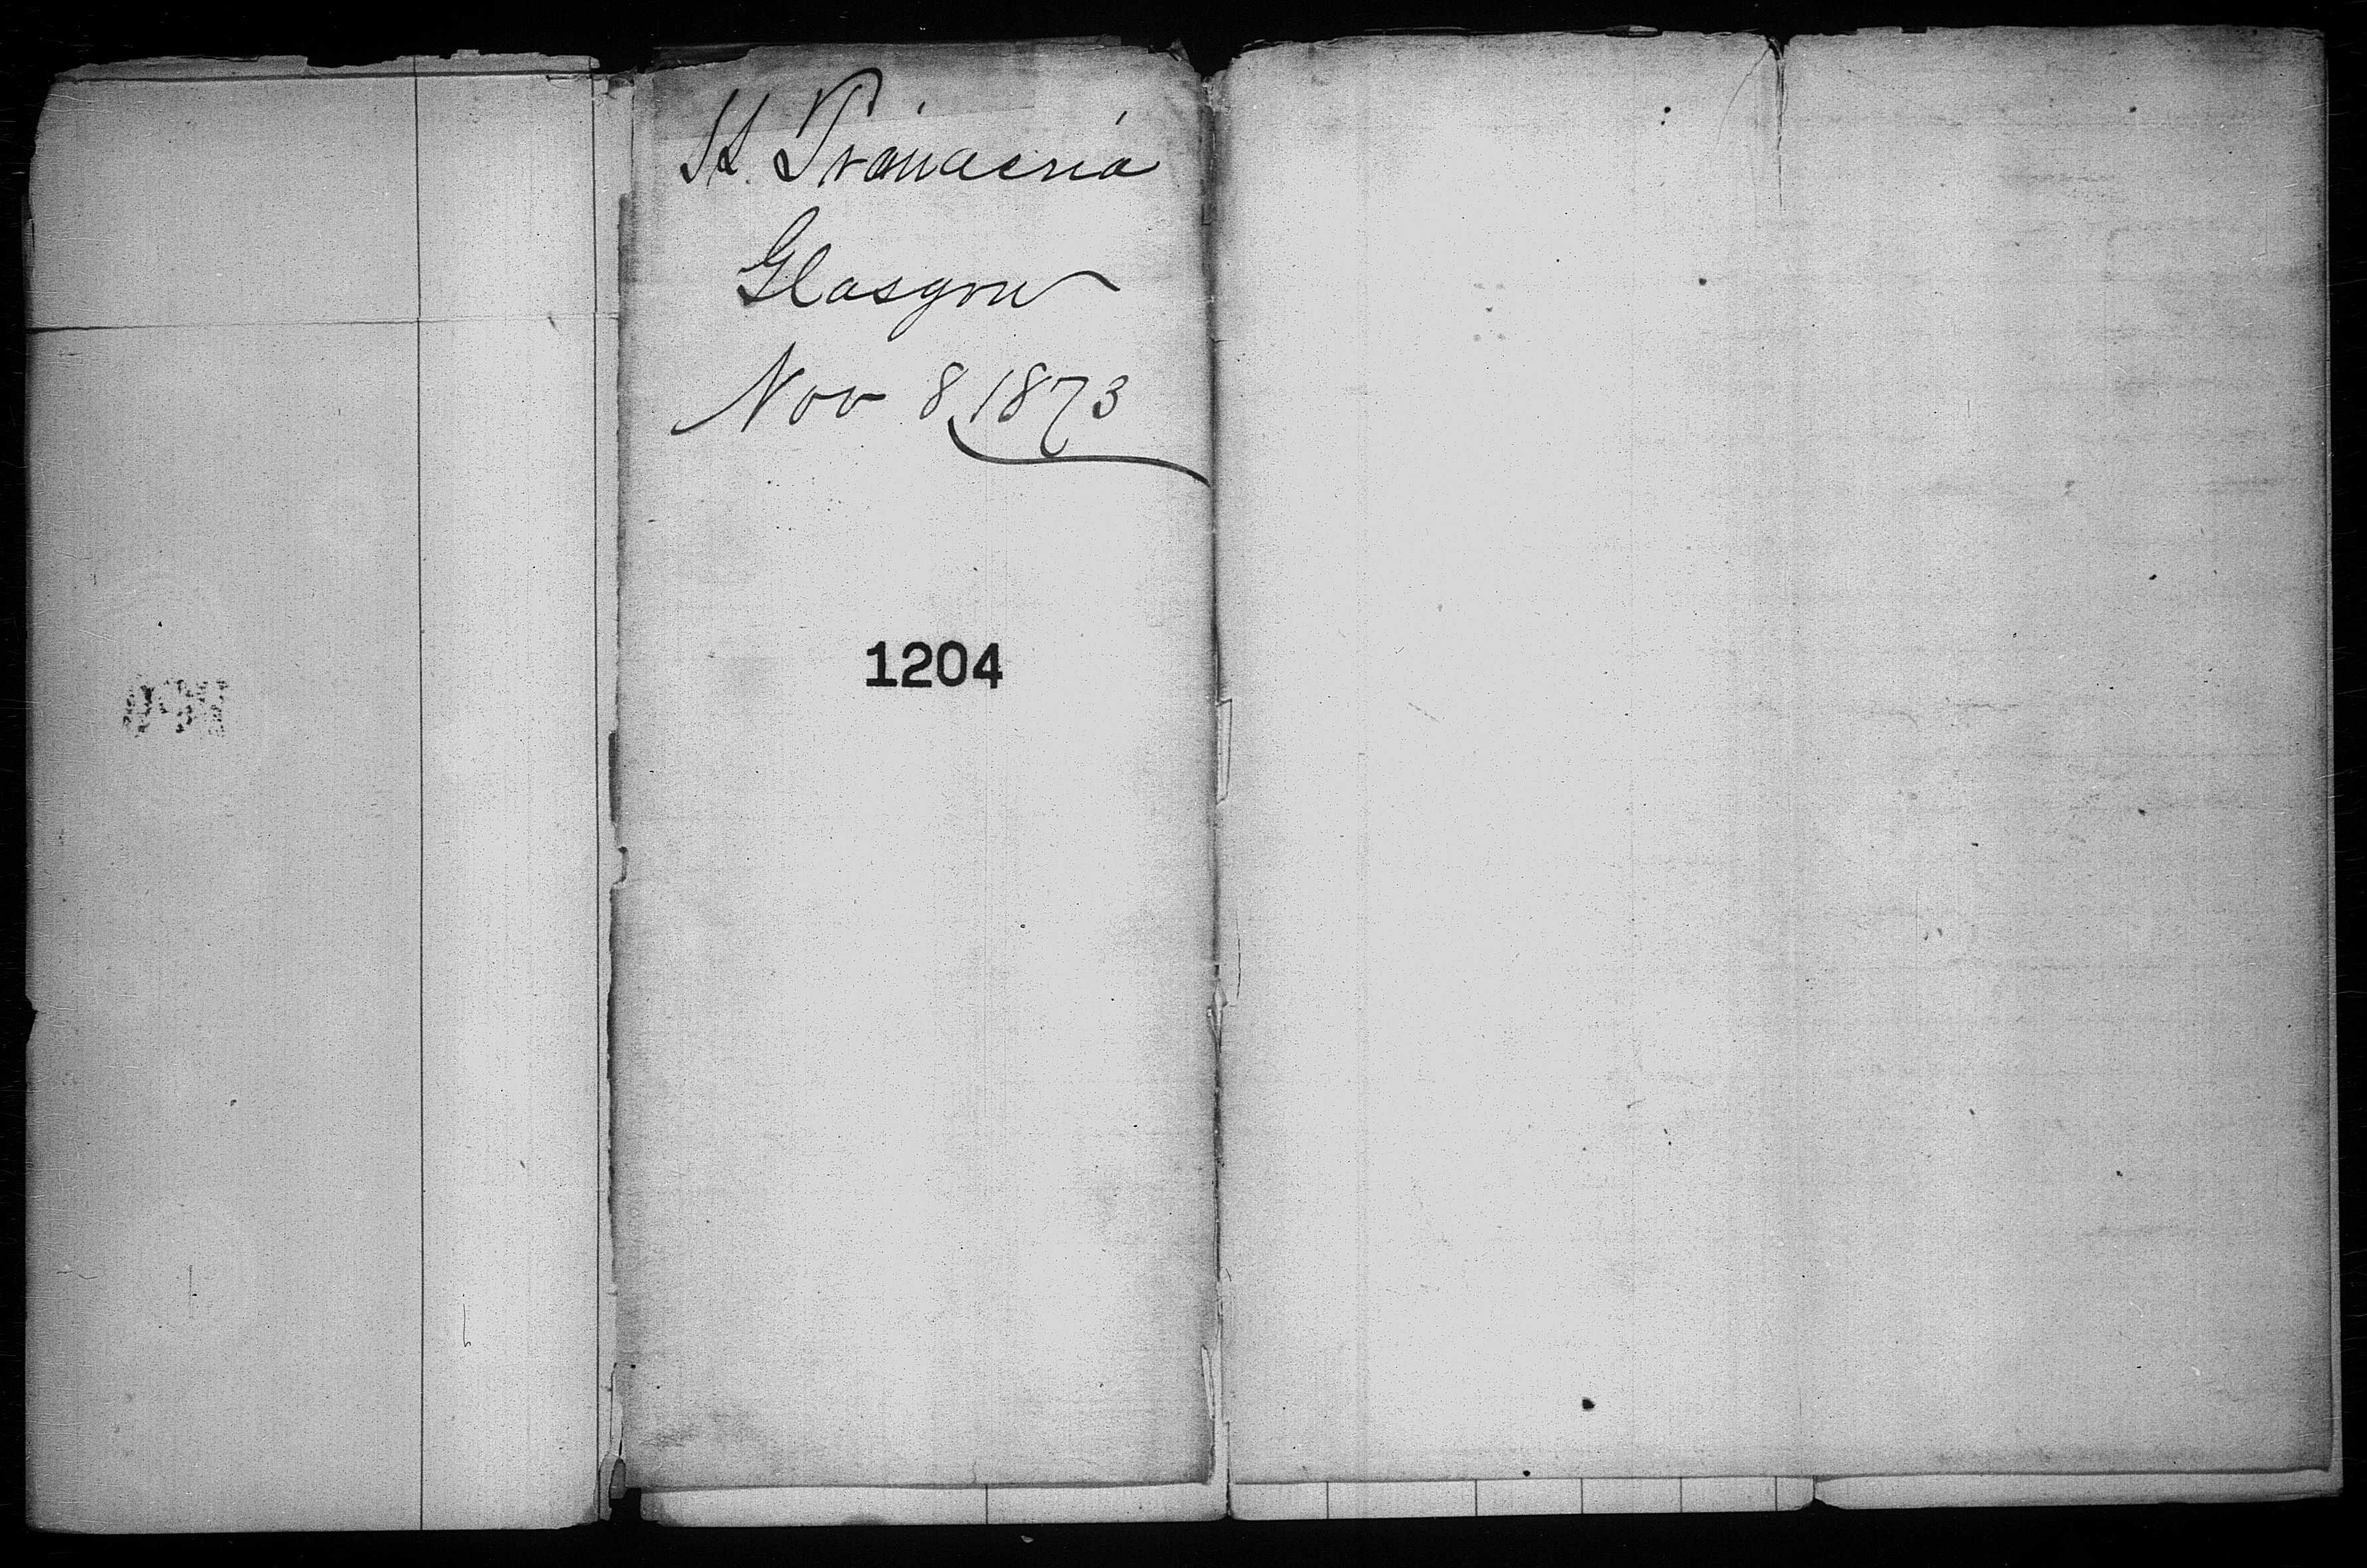 St. Trinacria
Glasgow
Nov 8, 1873
1204